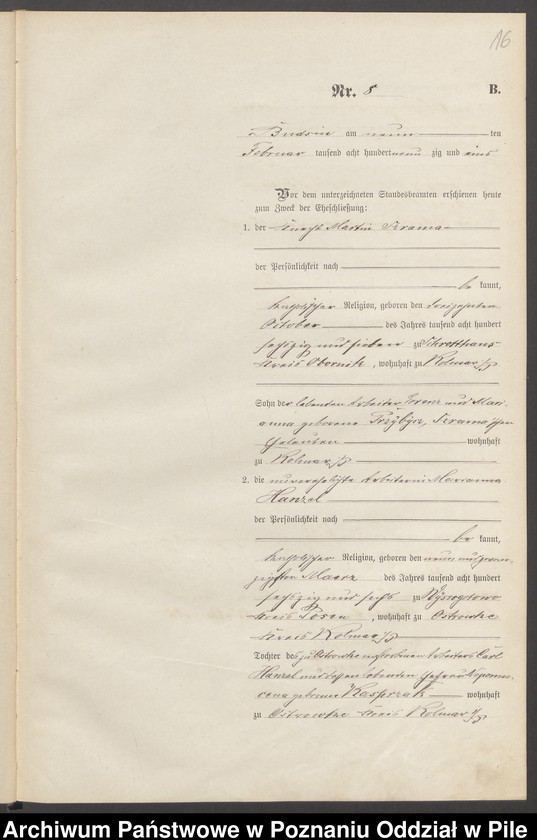 16
Nr. 8 B.
Budsin am neun ten
Februar tausend acht hundert neun zig und eins
Vor dem unterzeichneten Standesbeamten erschienen heute
zum Zweck der Eheschließung:
1. der Knecht Martin Szrama
der Persönlichkeit nach
be kannt,
katholischer Religion, geboren den dreizehnten
October des Jahres tausend acht hundert
sechszig und sieben zu Schrotthaus
Kreis Obornik, wohnhaft zu Kolmar i/P
Sohn der lebenden Arbeiter Lorenz und Mari-
anna geborene Przybysz, Szrama'schen
Eheleuten wohnhaft
zu Kolmar i/P
2. die unverehelichte Arbeiterin Marianna
Hanzel
der Persönlichkeit nach
be kannt,
katholischer Religion, geboren den neun und zwan-
zigsten Maerz des Jahres tausend acht hundert
sechszig und sechs zu
Kreis Posen, wohnhaft zu Ostrowke
Kreis Kolmar i/P
Tochter des zu Ostrowke verstorbenen Arbeiters Carl
Hanzel und dessen lebenden Ehefrau Nepomu-
cena geborene Kasprzak wohnhaft
zu Ostrowke Kreis Kolmar i/P
Archiwum Państwowe w Poznaniu Oddział w Pile